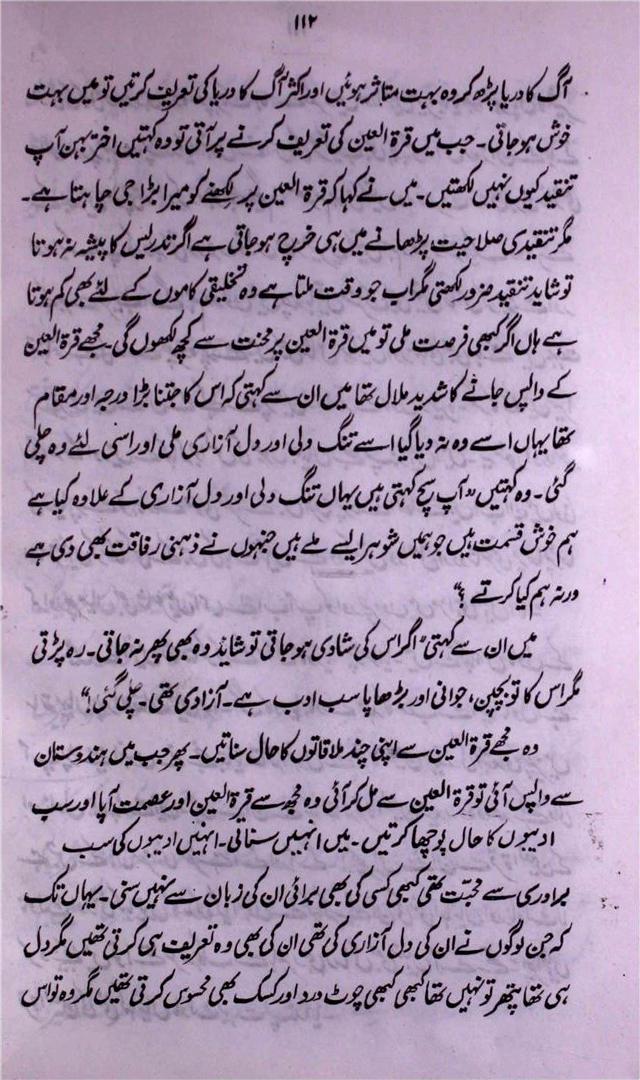 ۱۱۲
آگ کا دریا پڑھ کر وہ بہت متاثر ہوئیں اور اکثر آگ کا دریا کی تعریف کرتیں تو میں بہت
خوش ہو جاتی۔ جب میں قرۃ العین کی تعریف کرنے پر آتی تو وہ کہتیں اختر بہن آپ
تنقید کیوں نہیں لکھتیں۔ میں نے کہا کہ قرۃ العین پر لکھنے کو میرا بڑا جی چاہتا ہے۔
مگر تنقیدی صلاحیت پڑھانے میں ہی خرچ ہو جاتی ہے اگر تدریس کا پیشہ نہ ہوتا
تو شاید تنقید ضرور لکھتی مگر اب جو وقت ملتا ہے وہ تخلیقی کاموں کے لئے بھی کم ہوتا
ہے ہاں اگر کبھی فرصت ملی تو میں قرۃ العین پر محنت سے کچھ لکھوں گی۔ مجھے قرۃ العین
کے واپس جانے کا شدید ملال تھا میں ان سے کہتی کہ اس کا جتنا بڑا درجہ اور مقام
تھا یہاں اسے وہ نہ دیا گیا اسے تنگ دلی اور دل آزاری ملی اور اسی لئے وہ چلی
گئی۔ وہ کہتیں "آپ سچ کہتی ہیں یہاں تنگ دلی اور دل آزاری کے علاوہ کیا ہے
ہم خوش قسمت ہیں جو ہمیں شوہر ایسے ملے ہیں جنہوں نے ذہنی رفاقت بھی دی ہے
ورنہ ہم کیا کرتے ؟"
میں ان سے کہتی "اگر اس کی شادی ہو جاتی تو شاید وہ بھی پھر نہ جاتی۔ رہ پڑتی
مگر اس کا تو بچپن، جوانی اور بڑھاپا سب ادب ہے۔ آزادی تھی۔ چلی گئی!"
وہ مجھے قرۃ العین سے اپنی چند ملاقاتوں کا حال سناتیں۔ پھر جب میں ہندوستان
سے واپس آئی تو قرۃ العین سے مل کر آئی وہ مجھ سے قرۃ العین اور عصمت آپا اور سب
ادیبوں کا حال پوچھا کرتیں۔ میں انہیں سناتی۔ انہیں ادیبوں کی سب
برادری سے محبت تھی کبھی کسی کی بھی برائی ان کی زبان سے نہیں سنی۔ یہاں تک
کہ جن لوگوں نے ان کی دل آزاری کی تھی ان کی بھی وہ تعریف ہی کرتی تھیں مگر دل
ہی تھا پتھر تو نہیں تھا کبھی کبھی چوٹ درد اور کسک بھی محسوس کرتی تھیں مگر وہ تو اس